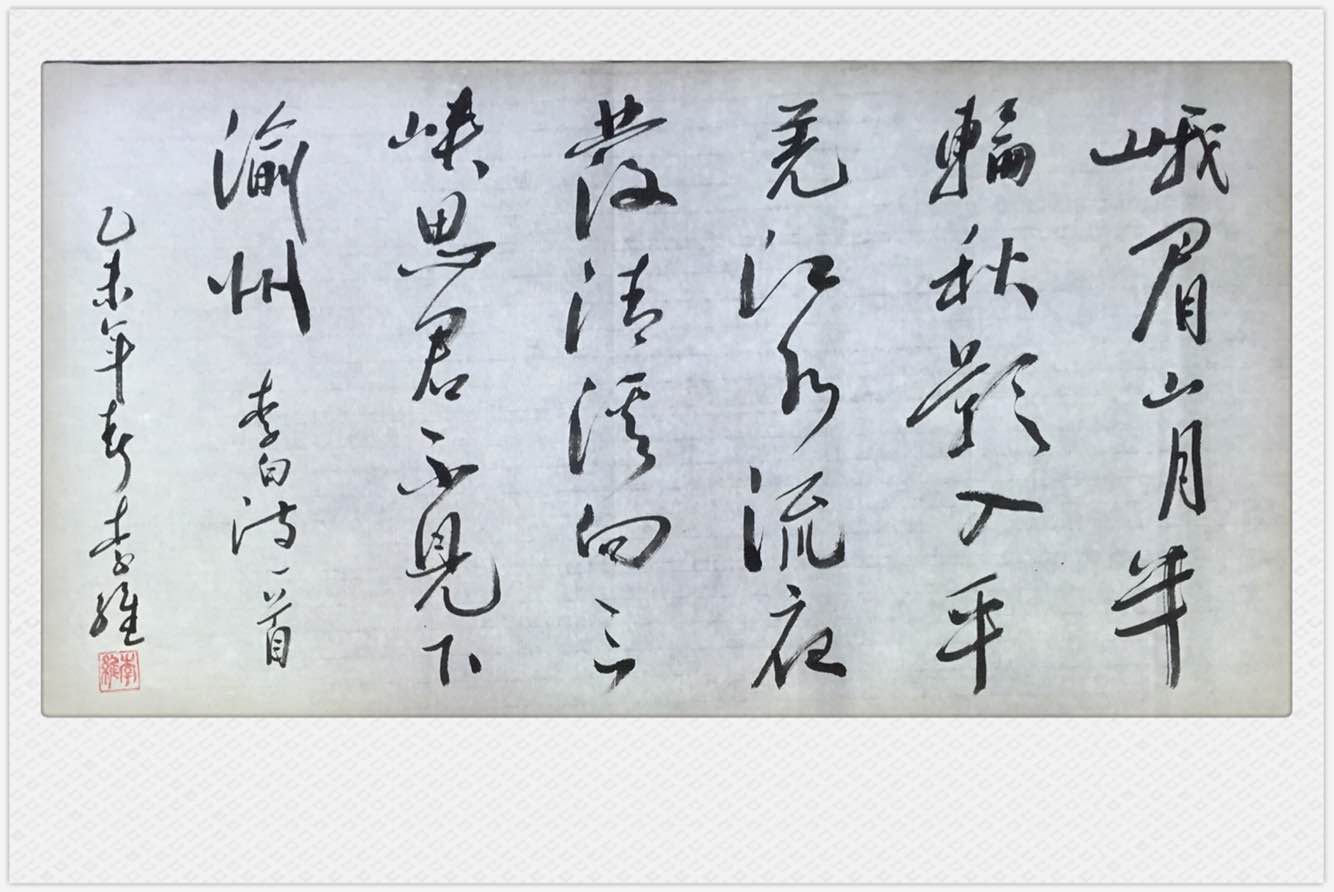 峨眉山月半
輪秋影入平
羌江水流夜
發清溪向三
峽思君不見下
渝州
李白詩一首
乙未年春李維
李維